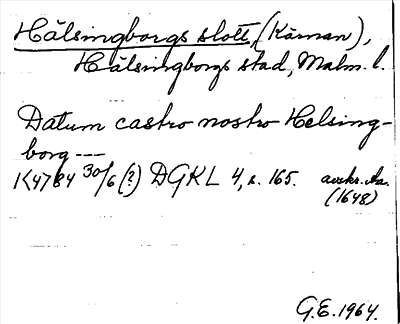 Hälsingborgs slott, (Kärnan),
Hälsingborgs stad, Malm. l.
Datum castro nostro Helsing-
borg ---
1<4>84 30/6 (?) DGKL 4, s. 165. avskr. Aa.
(1648)
G.E. 1964.